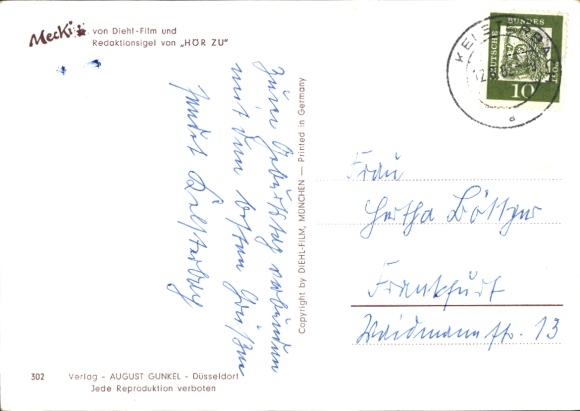 Mecki von Diehl-Film und
Redaktionsigel von „HÖR ZU"
DEUTSCHE BUNDESPOST
10
KELSTERBA
12.
a
Zum Geburtstag verbunden
mit den besten Grüßen
sendet Kelsterbach
Copyright by DIEHL-FILM, MÜNCHEN — Printed in Germany
Frau
Hertha Böttger
Frankfurt
Waidmannstr. 13
302 Verlag - AUGUST GUNKEL - Düsseldorf
Jede Reproduktion verboten